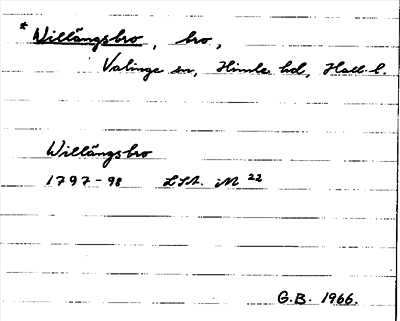 * Willängsbro, bro,
Valinge sn, Himle hd, Hall. l.
Willängsbro
1797-98 LSA. M 22
G.B. 1966.